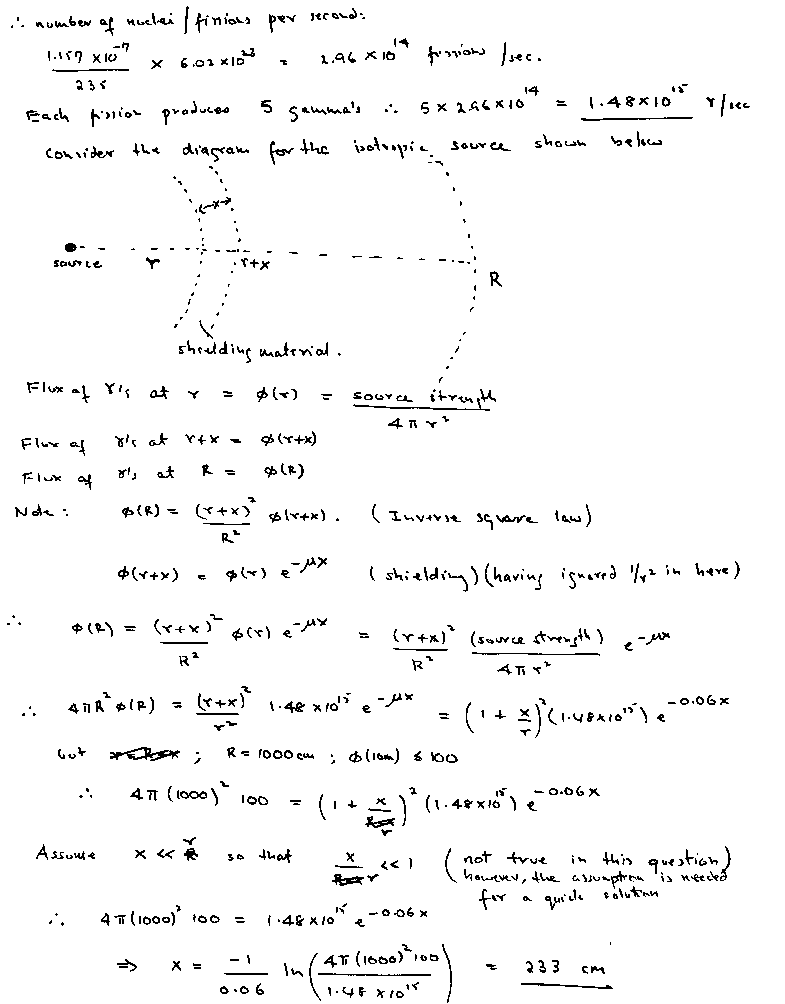 ∴ number of nuclei / fissions per second:
1.157 ×10⁻⁷ / 235 × 6.02×10²³ = 2.96 ×10¹⁴ fissions /sec.
Each fission produces 5 gamma's ∴ 5 × 2.96×10¹⁴ = 1.48×10¹⁵ γ/sec
Consider the diagram for the isotropic source shown below
x
source r r+x
R
shielding material.
Flux of γ's at r = φ(r) = source strength / 4πr²
Flux of γ's at r+x = φ(r+x)
Flux of γ's at R = φ(R)
Note: φ(R) = (r+x)² / R² φ(r+x). (Inverse square law)
φ(r+x) = φ(r) e^-μx (shielding)(having ignored 1/r² in here)
∴ φ(R) = (r+x)² / R² φ(r) e^-μx = (r+x)² / R² (source strength) / 4πr² e^-μx
∴ 4πR² φ(R) = (r+x)² / r² 1.48 ×10¹⁵ e^-μx = (1 + x/r)² (1.48×10¹⁵) e^-0.06x
but ; R = 1000 cm ; φ(10m) ≤ 100
∴ 4π(1000)² 100 = (1 + x/r)² (1.48×10¹⁵) e^-0.06x
Assume x << r so that x/r << 1 (not true in this question
however, the assumption is needed
for a quick solution)
∴ 4π(1000)² 100 = 1.48×10¹⁵ e^-0.06x
⇒ x = -1/0.06 ln(4π(1000)²100 / 1.48 ×10¹⁵) = 233 cm